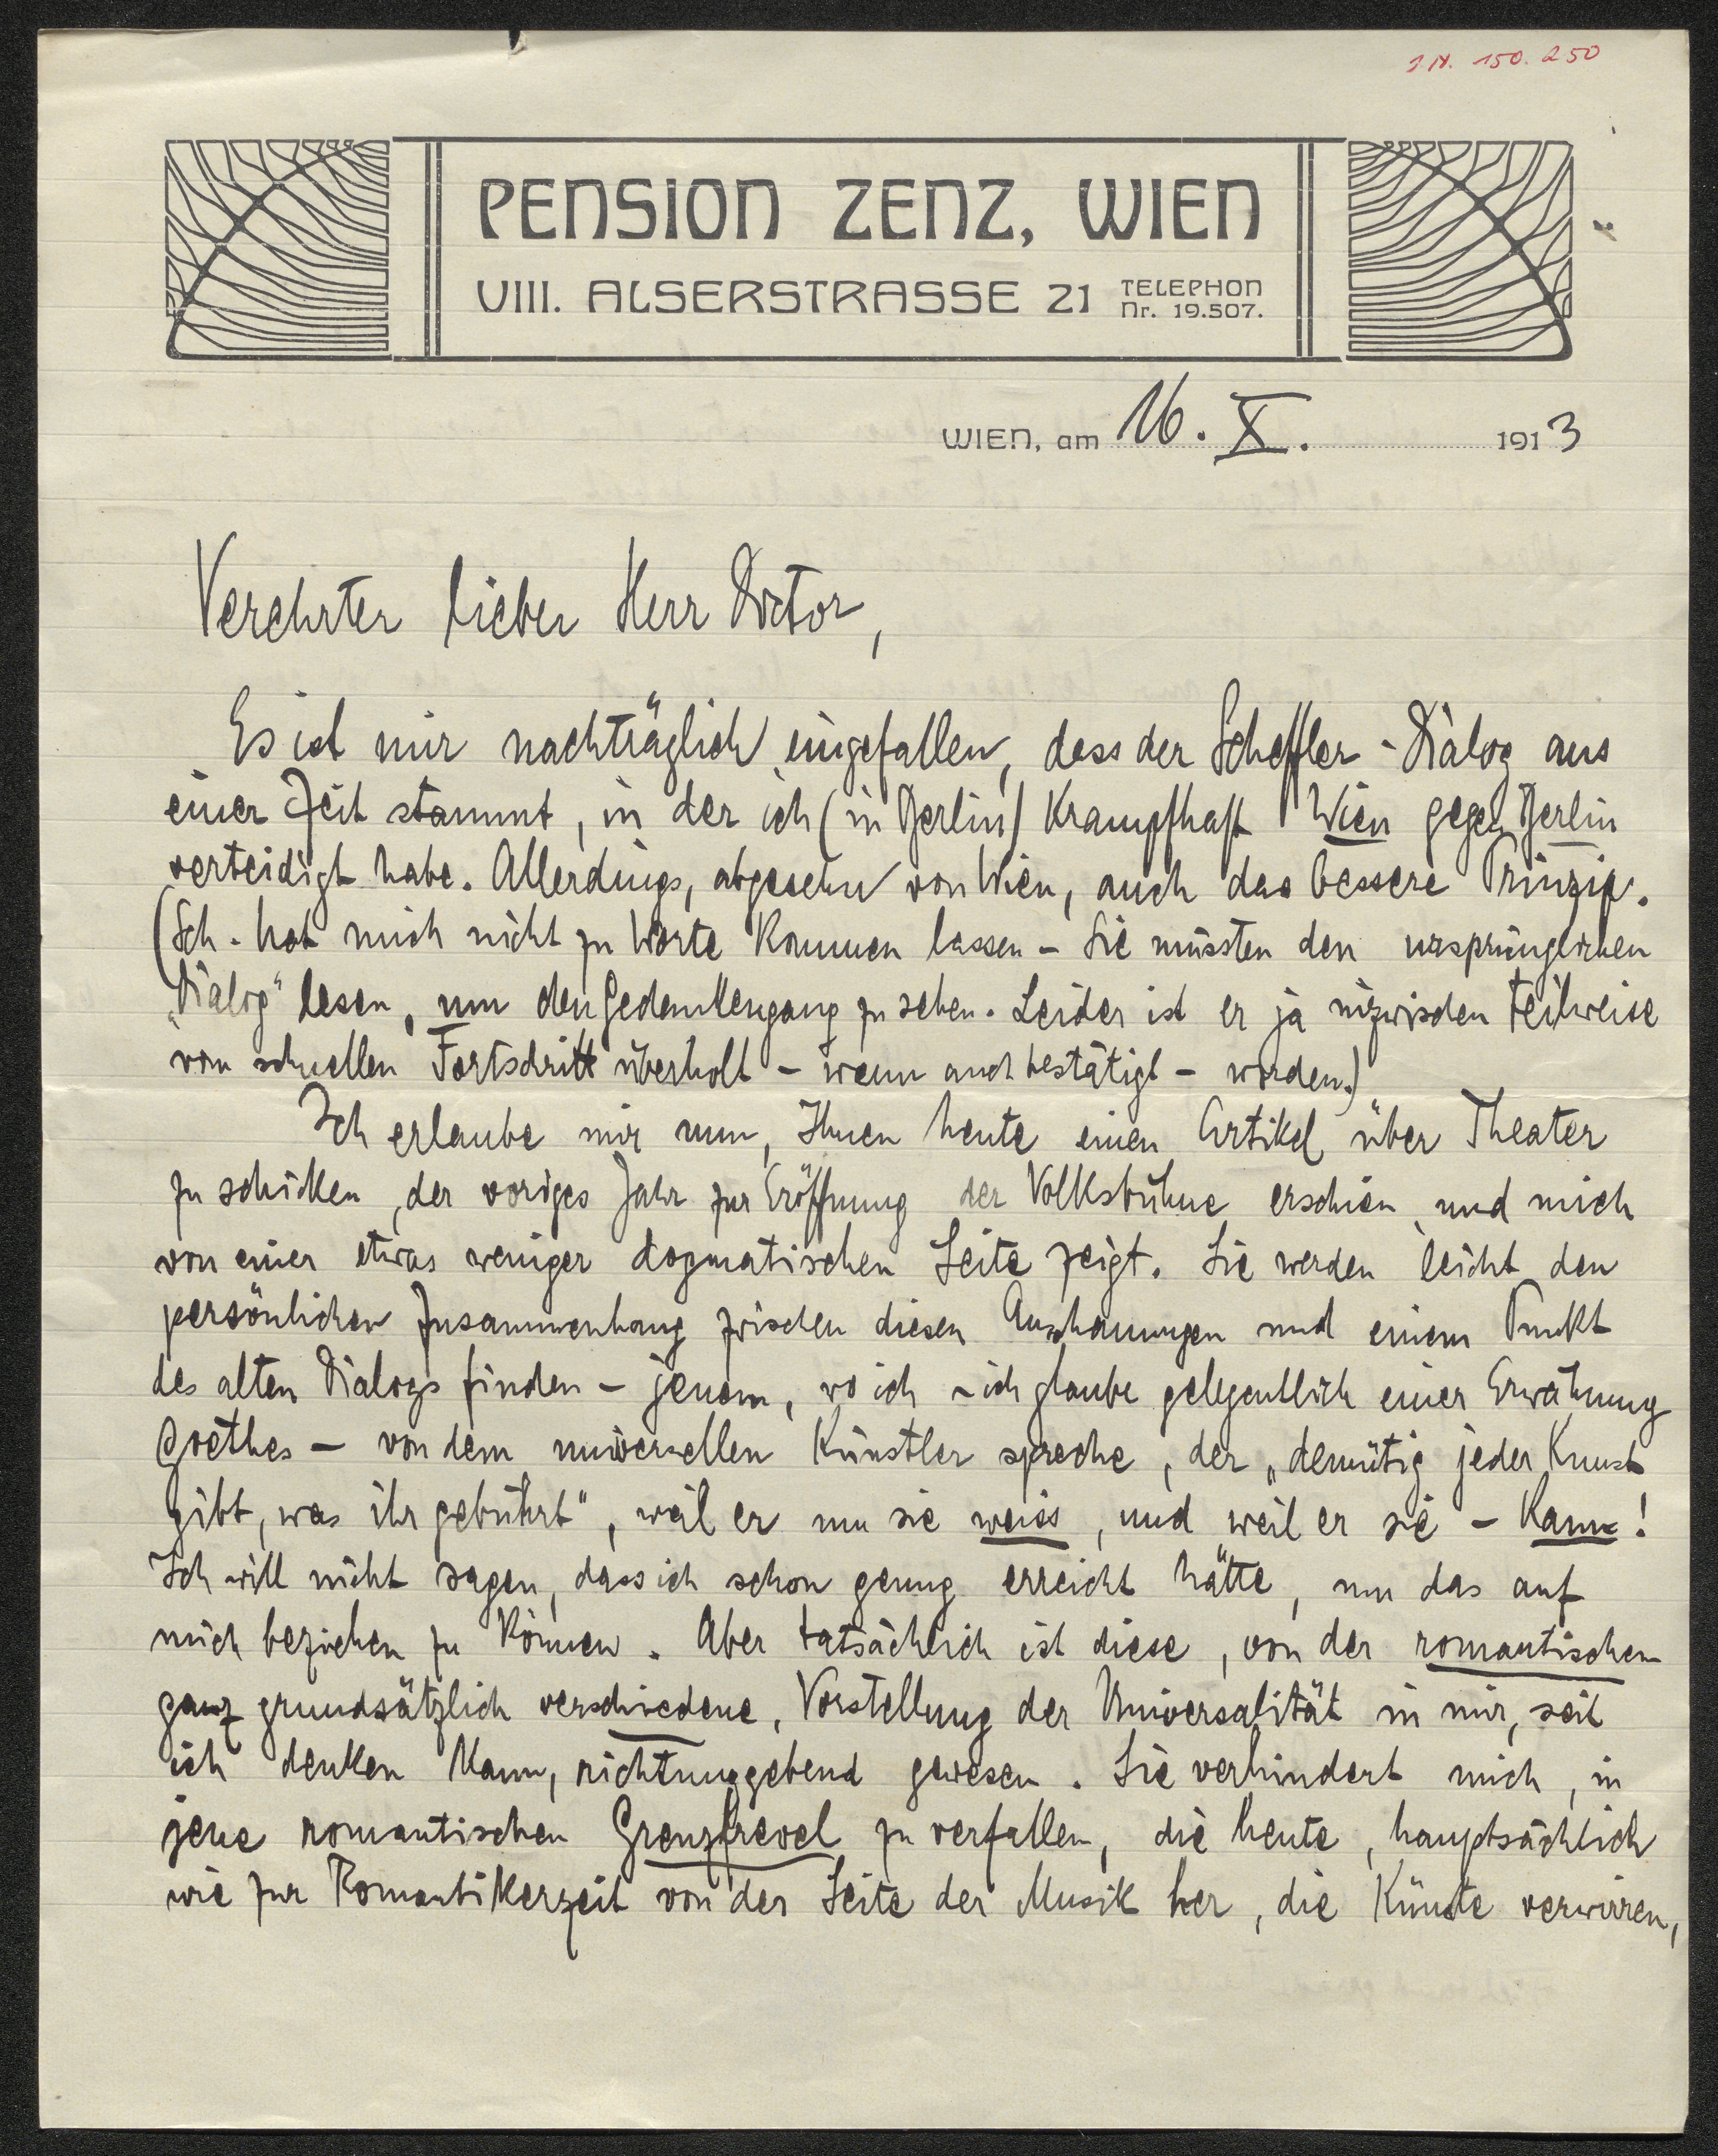 I.N. 150.250
PENSION ZENZ, WIEN
VIII. ALSERSTRASSE 21 TELEPHON Nr. 19.507.
WIEN, am 16. X. 1913
Verehrter lieber Herr Doctor,
Es ist mir nachträglich eingefallen, dass der Scheffler-Dialog aus
einer Zeit stammt, in der ich (in Berlin) krampfhaft Wien gegen Berlin
verteidigt habe. Allerdings, abgesehn von Wien, auch das bessere Prinzip.
(Sch. hat mich nicht zu Worte kommen lassen – Sie müssten den ursprünglichen
„Dialog" lesen, um den Gedankengang zu sehen. Leider ist er ja inzwischen teilweise
vom schnellen Fortschritt überholt – wenn auch bestätigt – worden.)
Ich erlaube mir nun, Ihnen heute einen Artikel über Theater
zu schicken, der voriges Jahr zur Eröffnung der Volksbühne erschien, und mich
von einer etwas weniger dogmatischen Seite zeigt. Sie werden leicht den
persönlichen Zusammenhang zwischen diesen Anschauungen und einem Punkt
des alten Dialogs finden – jenem, wo ich – ich glaube gelegentlich einer Erwähnung
Goethes – von dem universellen Künstler spreche, der „demütig jeder Kunst
gibt, was ihr gebührt", weil er um sie weiss, und weil er sie – kann!
Ich will nicht sagen, dass ich schon genug erreicht hätte, um das auf
mich beziehen zu können. Aber tatsächlich ist diese, von der romantischen
ganz grundsätzlich verschiedene, Vorstellung der Universalität in mir, seit
ich denken kann, richtunggebend gewesen. Sie verhindert mich, in
jene romantischen Grenzfrevel zu verfallen, die heute, hauptsächlich
wie zur Romantikerzeit von der Seite der Musik her, die Künste verwirren,